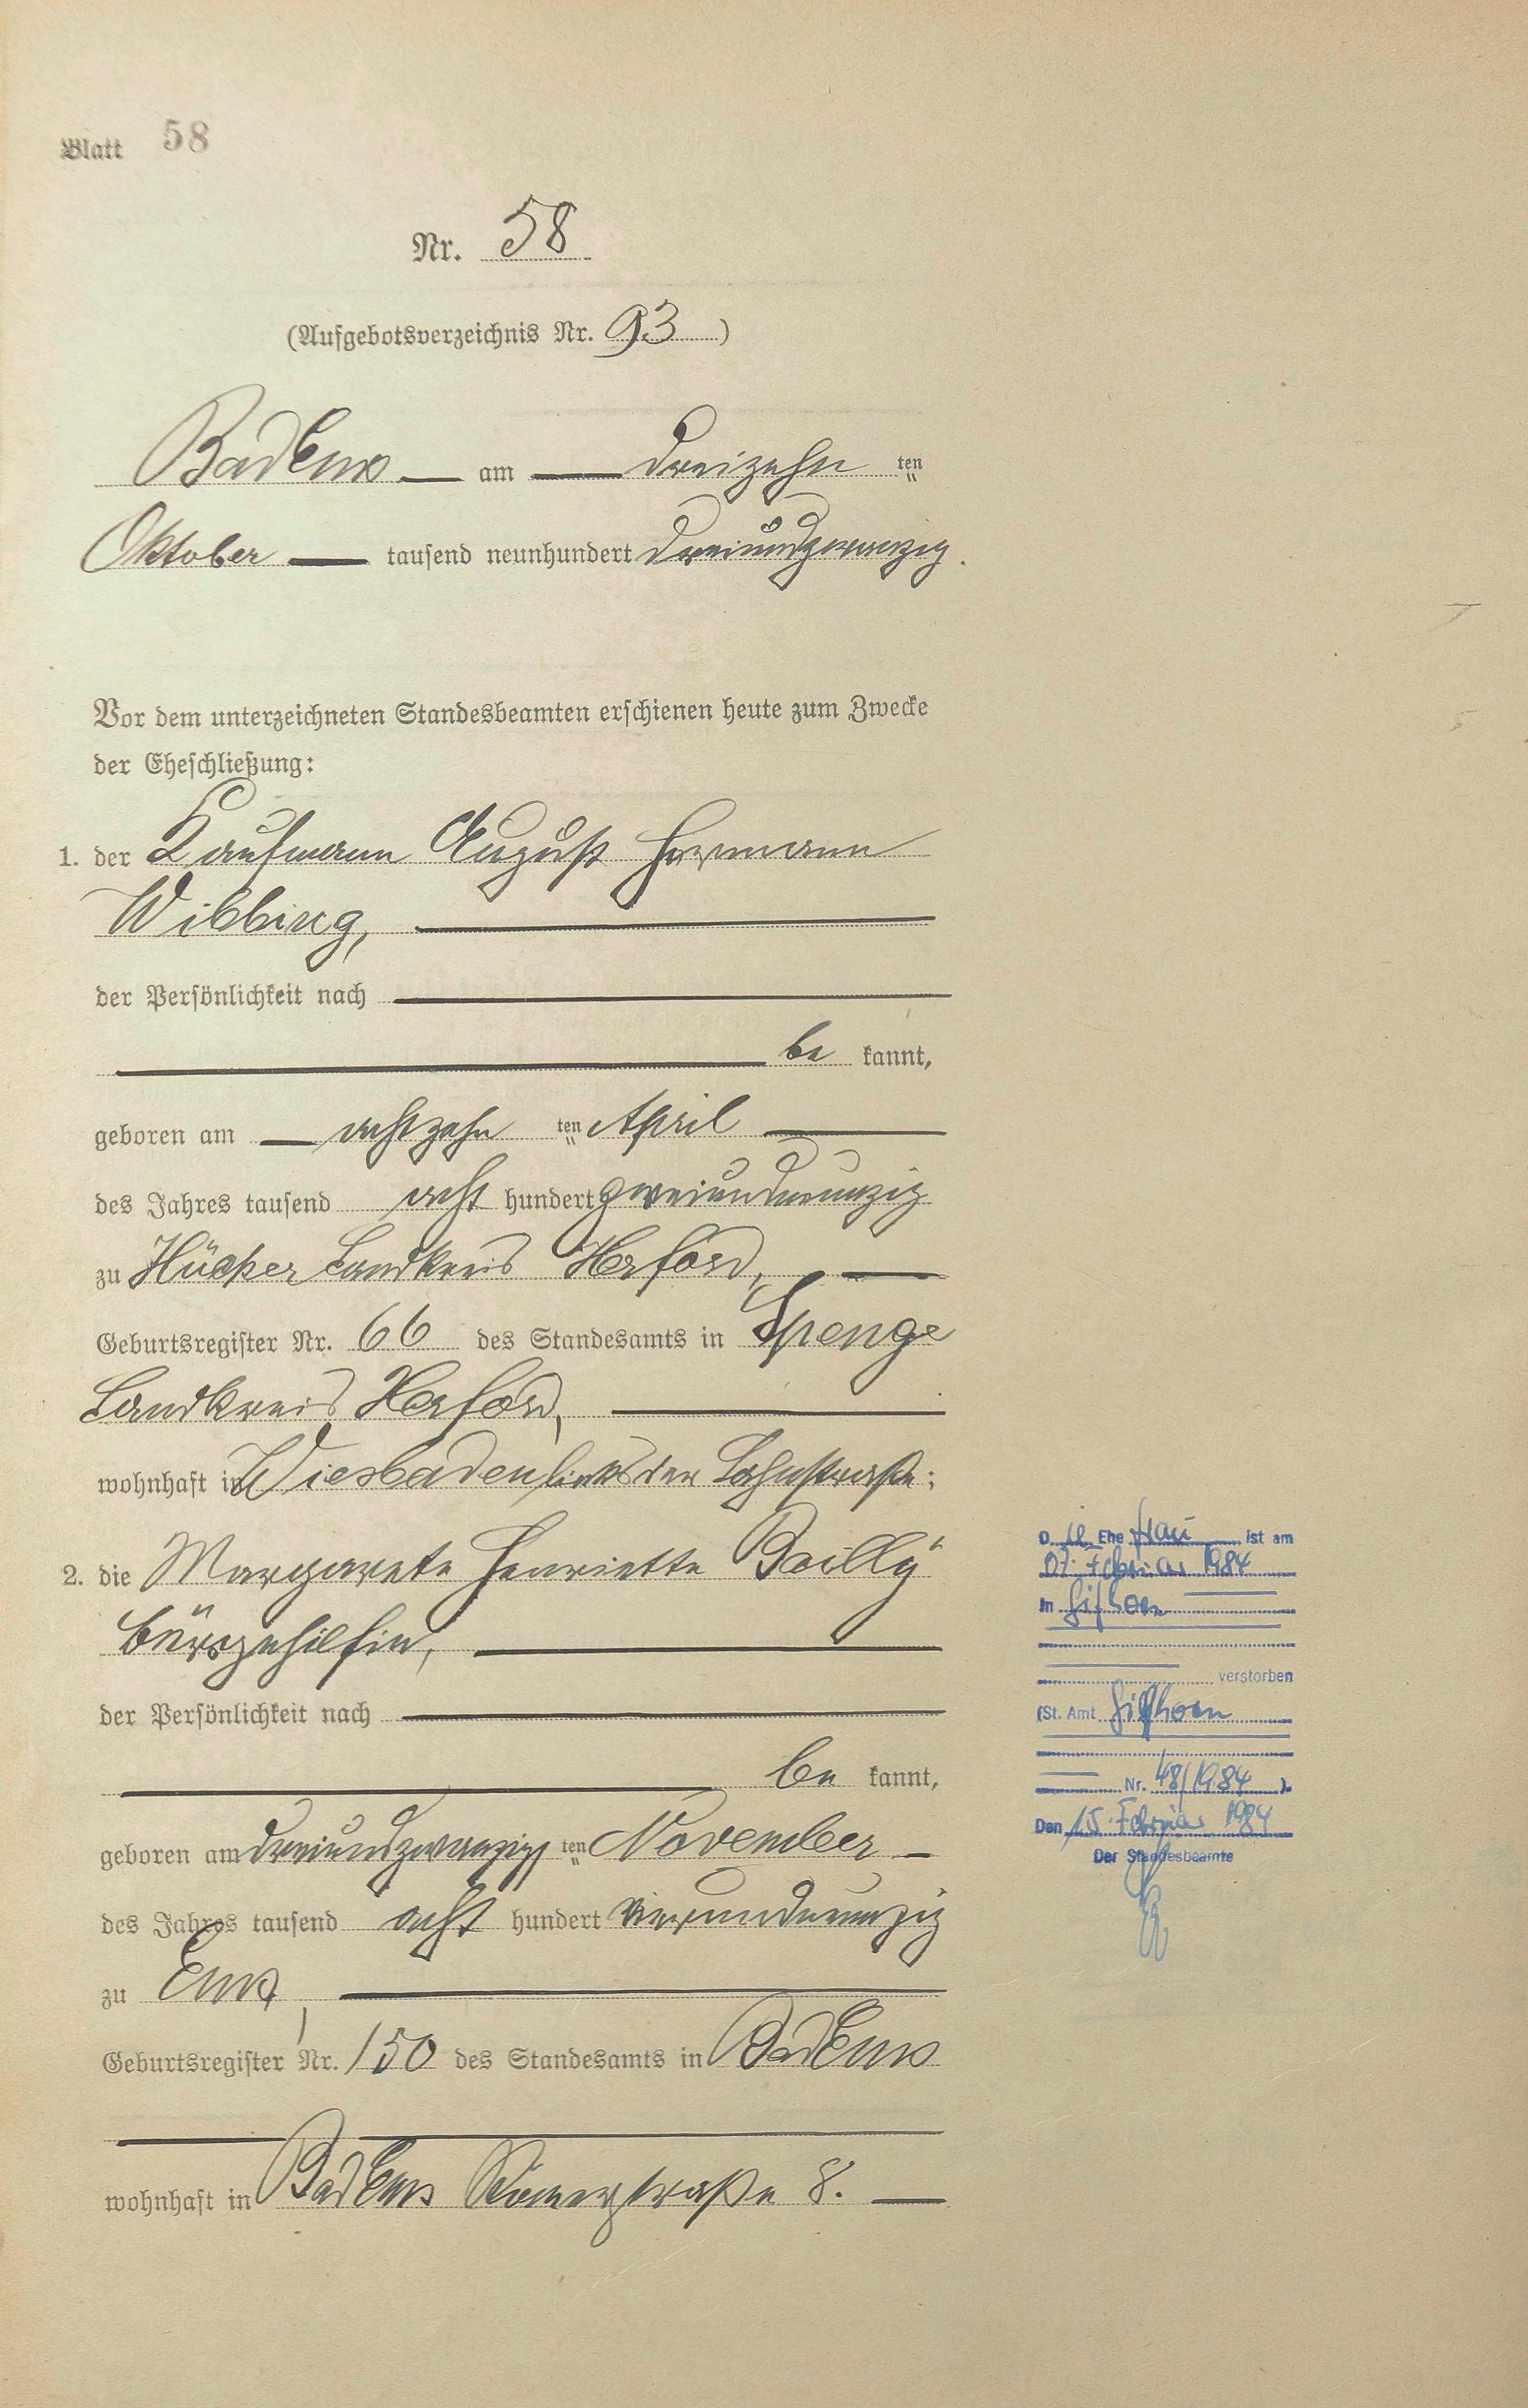 Blatt 58
Nr. 58
(Aufgebotsverzeichnis Nr. 93)
Bad Ems am dreizehn ten
Oktober tausend neunhundert dreiundzwanzig.
Vor dem unterzeichneten Standesbeamten erschienen heute zum Zwecke
der Eheschließung:
1. der Kaufmann August Hermann
Wibbing,
der Persönlichkeit nach
be kannt,
geboren am achtzehn ten April
des Jahres tausend acht hundert zweiundneunzig
zu Hücker Landkreis Herford,
Geburtsregister Nr. 66 des Standesamts in Spenge
Landkreis Herford,
wohnhaft in Wiesbaden links der Lahnstraße;
2. die Margarete Henriette Bailly
Bürogehilfin,
der Persönlichkeit nach
be kannt,
geboren am dreiundzwanzig ten November
des Jahres tausend acht hundert vierundneunzig
zu Ems,
Geburtsregister Nr. 150 des Standesamts in Bad Ems
wohnhaft in Bad Ems Römerstraße 8.
D. ie Ehe frau ist am
07. Februar 1984
in Gifhorn
verstorben
(St. Amt Gifhorn
Nr. 48/1984 ).
Den 15. Februar 1984
Der Standesbeamte